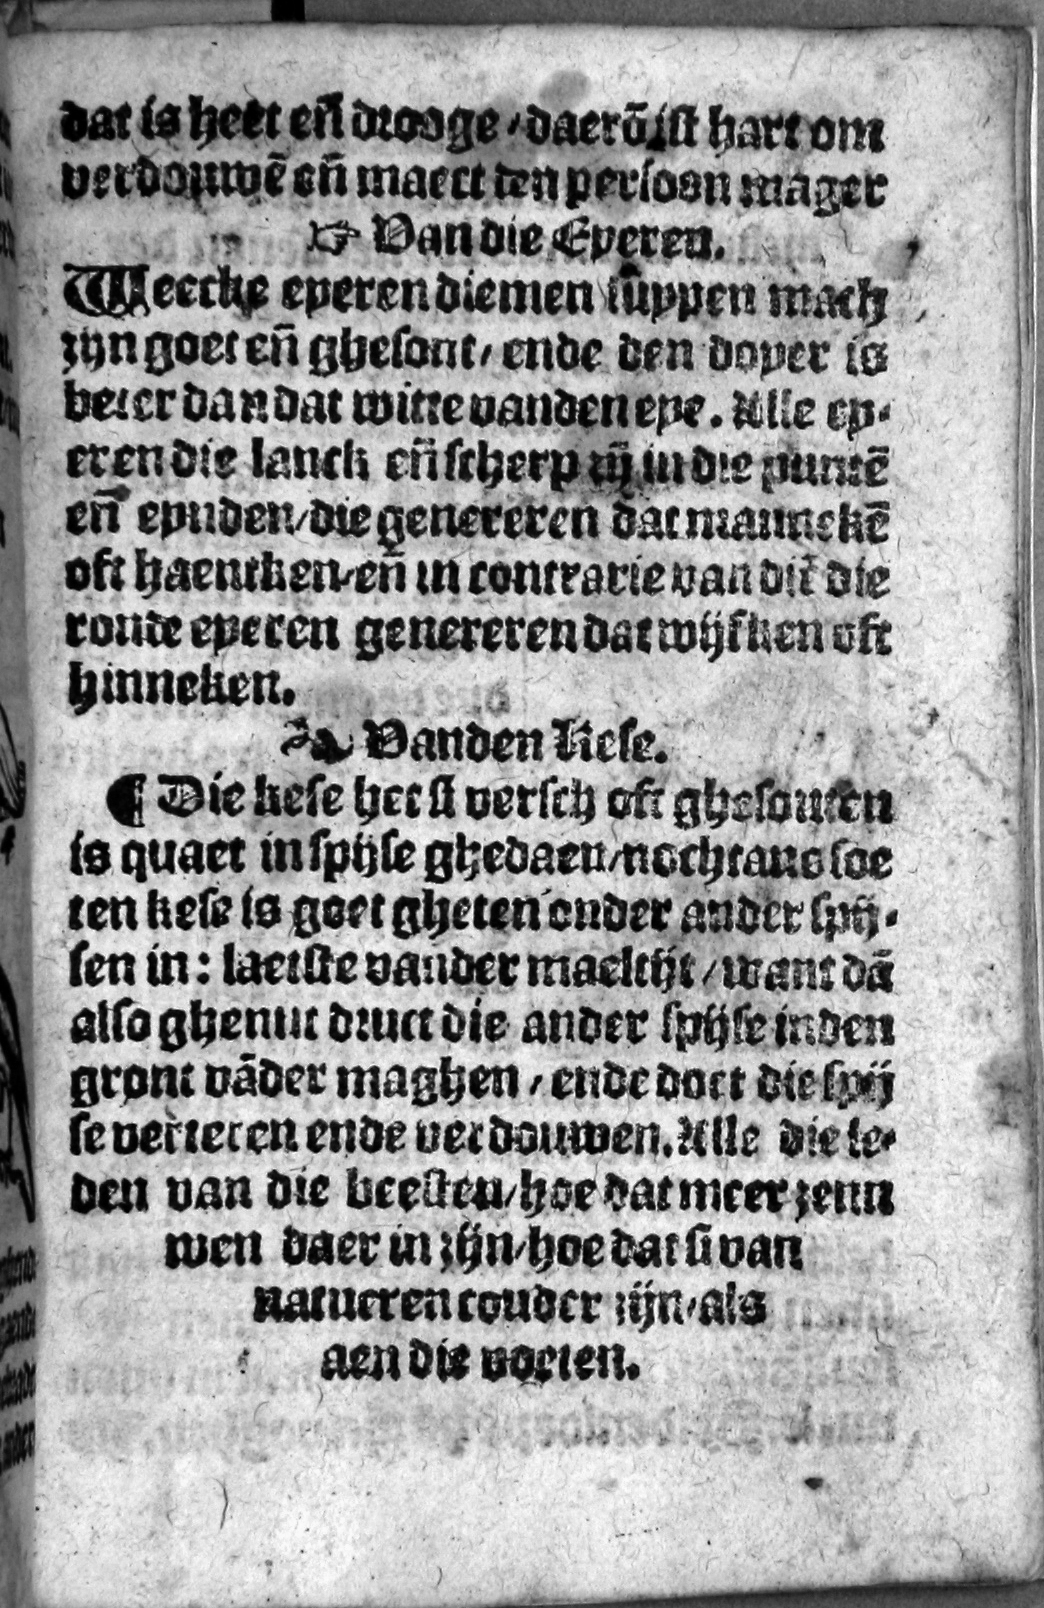 dat is heet eñ drooge/daerō ist hart om
verdouwē eñ maect ten persoon mager
☞ Van die Eyeren.
Weecke eyeren diemen suppen mach
zijn goet eñ ghesont/ ende den doyer is
beter dan dat witte vanden eye. Alle ey-
eren die lanck eñ scherp zij in die puntē
eñ eynden/die genereren dat mannekē
oft haentken/eñ in contrarie van dit die
ronde eyeren genereren dat wijfken oft
hinneken.
❧ Vanden Kese.
¶ Die kese heet si versch oft ghesouten
is quaet in spijse ghedaen/nochtans soe
ten kese is goet gheten onder ander spij-
sen in: laetste vander maeltijt/want dā
also ghenut druct die ander spijse in den
gront vāder maghen/ende doet die spij
se verteren ende verdouwen. Alle die le-
den van die beesten/hoe dat meer zenu
wen daer in zijn/hoe dat si van
natueren couder zijn/als
aen die voeten.